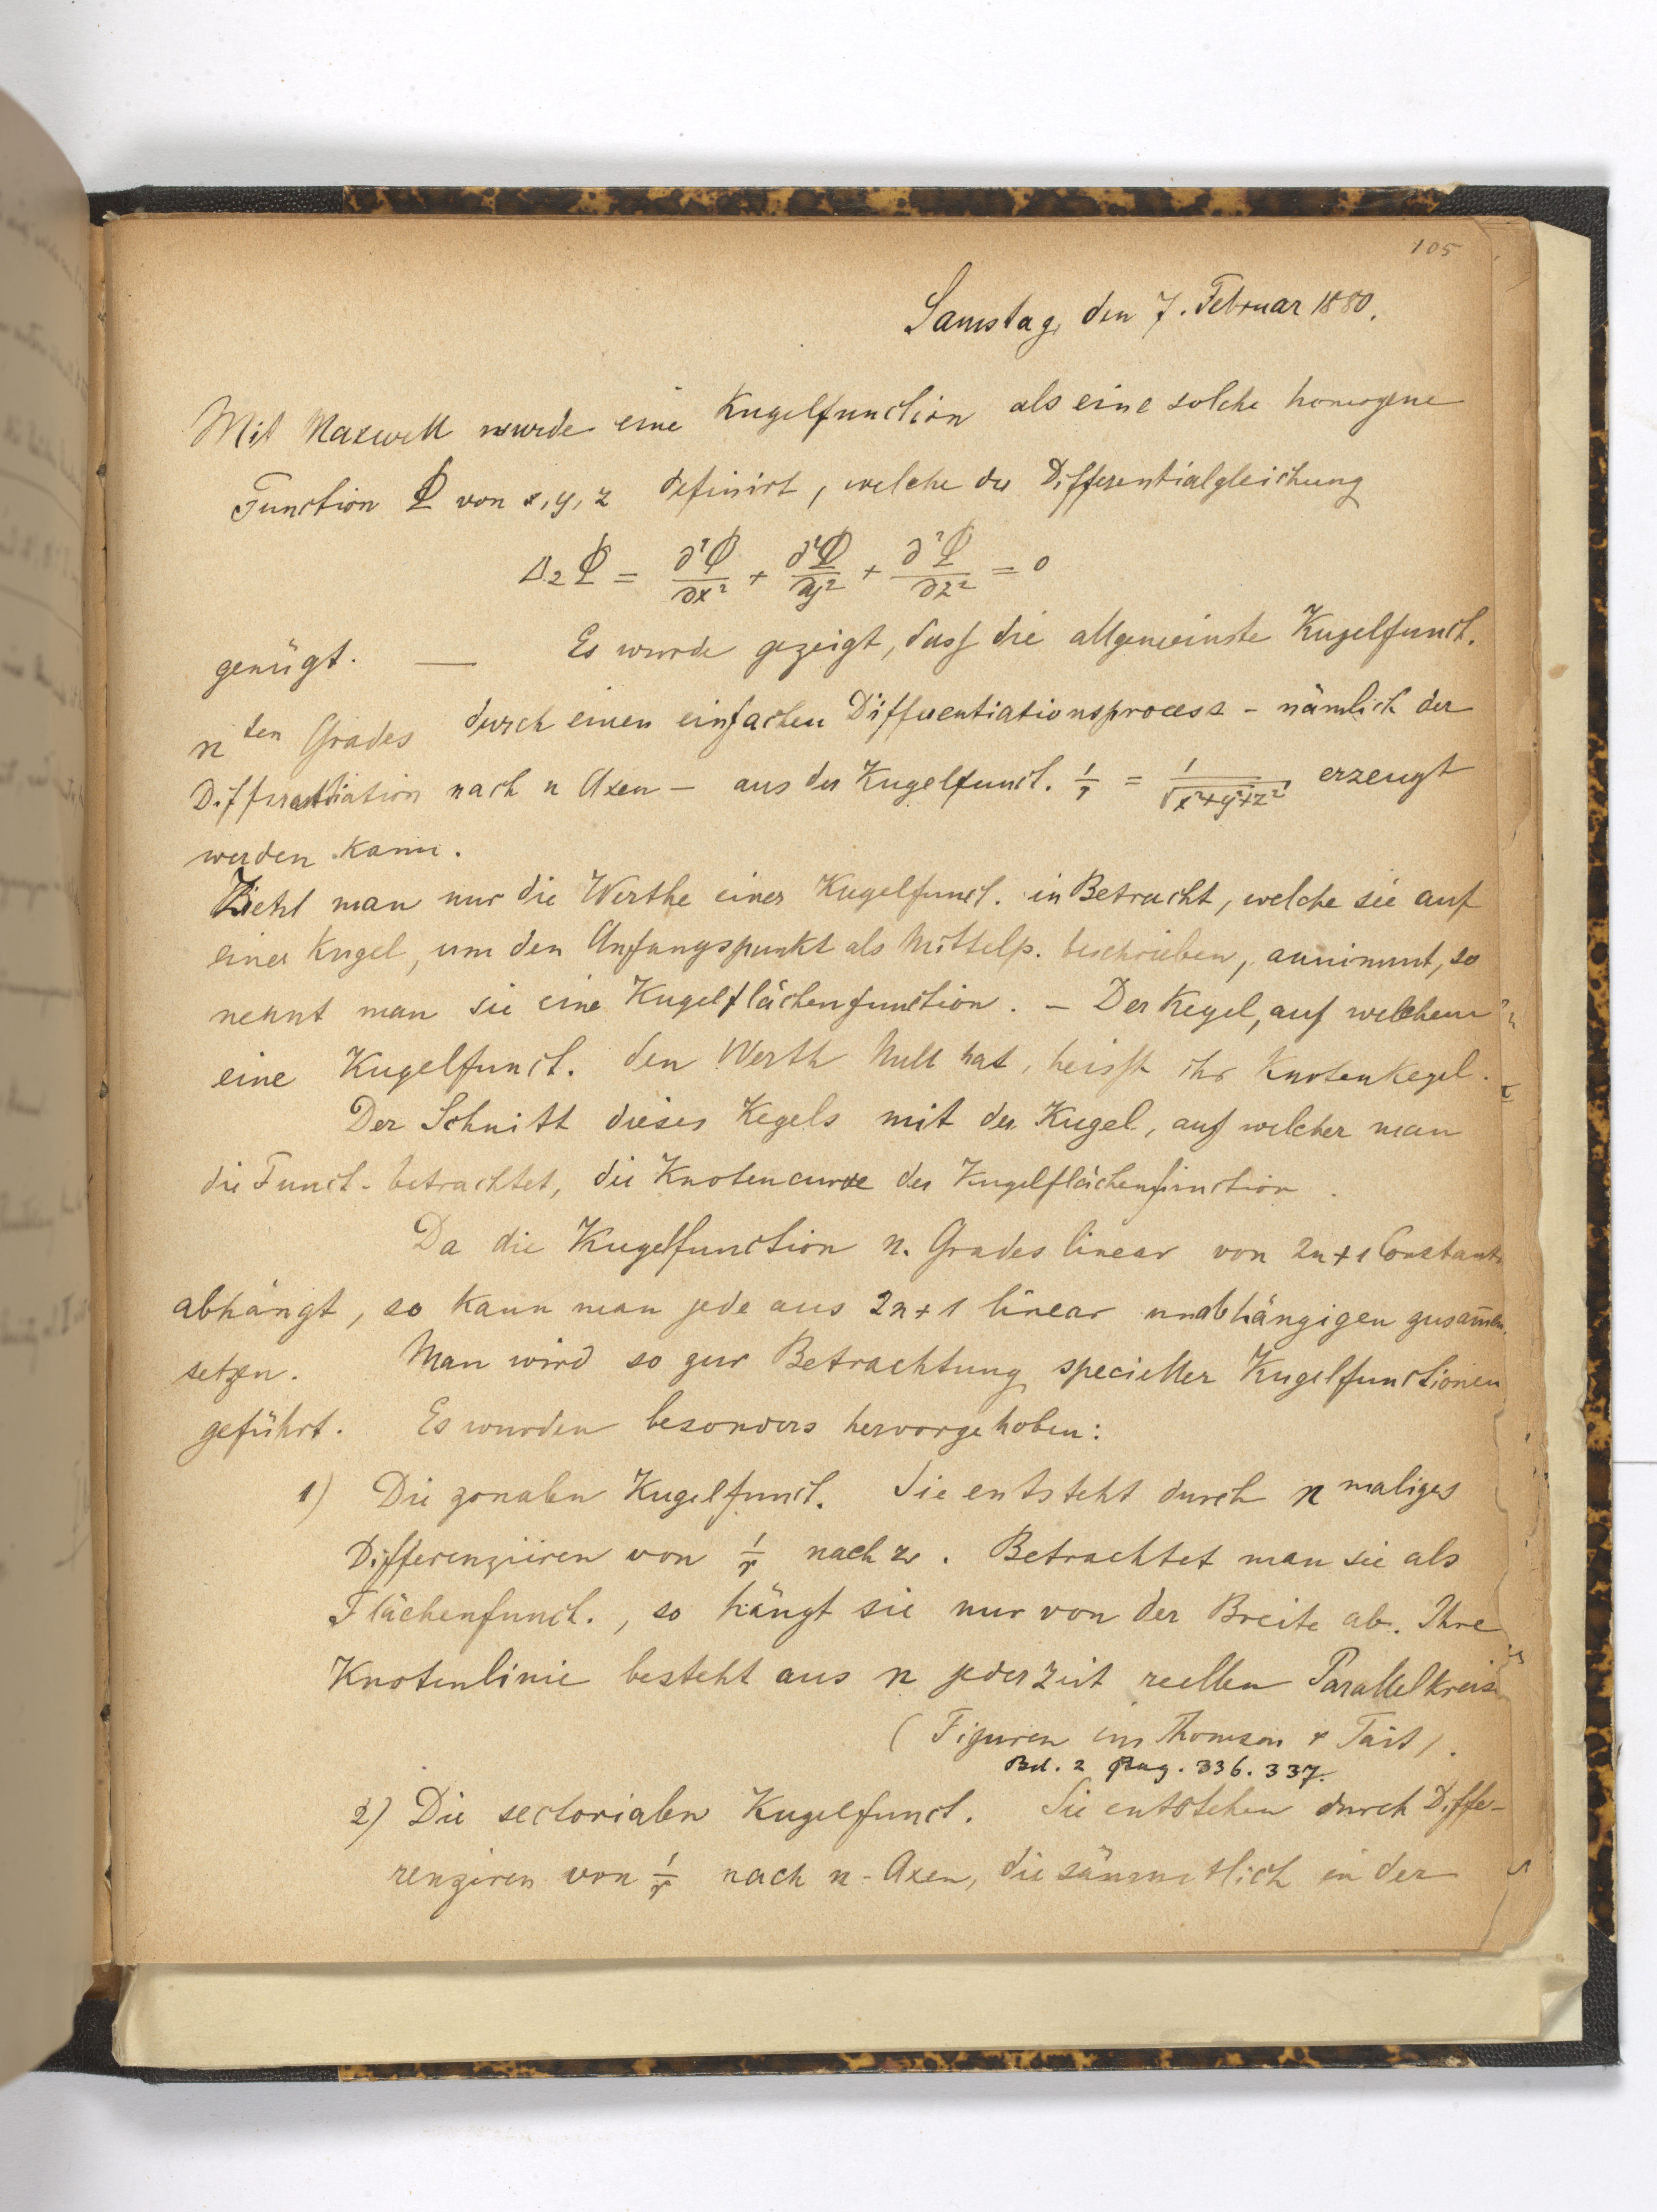 105
Samstag, den 7. Februar 1880.
Mit Maxwell wurde eine Kugelfunction als eine solche homogene
Function Φ von x, y, z definirt, welche der Differentialgleichung
Δ₂Φ = ∂²Φ/∂x² + ∂²Φ/∂y² + ∂²Φ/∂z² = 0
genügt. — Es wurde gezeigt, dass die allgemeinste Kugelfunct.
n ten Grades durch einen einfachen Differentiationsprocess - nämlich der
Differentiation nach n Axen — aus der Kugelfunct. 1/r = 1/√x²+y²+z² erzeugt
werden kann.
Zieht man nur die Werthe einer Kugelfunct. in Betracht, welche sie auf
einer Kugel, um den Anfangspunkt als Mittelp. beschrieben, annimmt, so
nennt man sie eine Kugelflächenfunction. — Der Kegel, auf welchem
eine Kugelfunct. den Werth Null hat, heisst ihr Knotenkegel.
Der Schnitt dieses Kegels mit der Kugel, auf welcher man
die Funct. betrachtet, die Knotencurve der Kugelflächenfunction.
Da die Kugelfunction n. Grades linear von 2n+1 Constant
abhängt, so kann man jede aus 2n+1 linear unabhängigen zusam̅en
setzen. Man wird so zur Betrachtung specieller Kugelfunctionen
geführt. Es wurden besonders hervorgehoben:
1) Die zonalen Kugelfunct. Sie entsteht durch n maliges
Differenziiren von 1/r nach z. Betrachtet man sie als
Flächenfunct., so hängt sie nur von der Breite ab. Ihre
Knotenlinie besteht aus n jederzeit reellen Parallelkreis
(Figuren im Thomson & Tait).
Bd. 2 Pag. 336. 337.
2) Die sectorialen Kugelfunct. Sie entstehen durch Diffe-
renziren von 1/r nach n-Axen, die sämmtlich in der